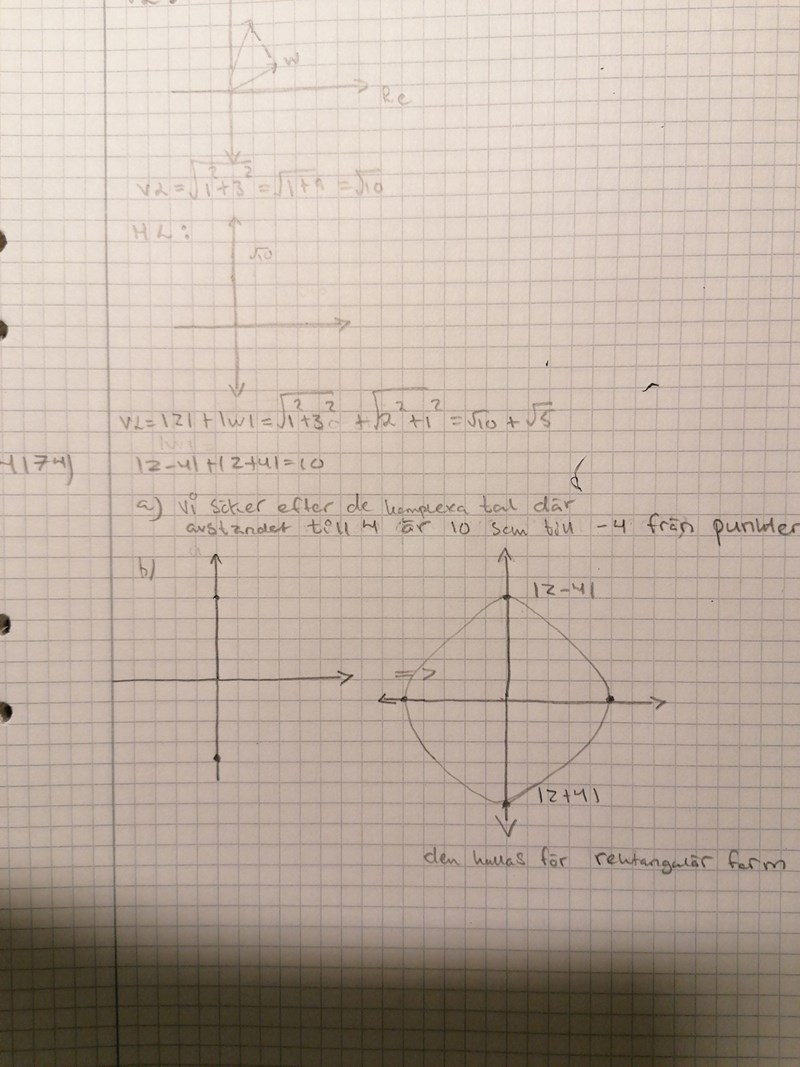 W
Re
VL = √1²+3² = √1+9 = √10
HL:
√10
VL = |z| + |w| = √1²+3² + √2²+1² = √10 + √5
4174) |z-4|+|z+4|=10
a) Vi söker efter de komplexa tal där
avståndet till 4 är 10 som till -4 från punkter
b)
|z-4|
=>
|z+4|
den kallas för rektangulär form